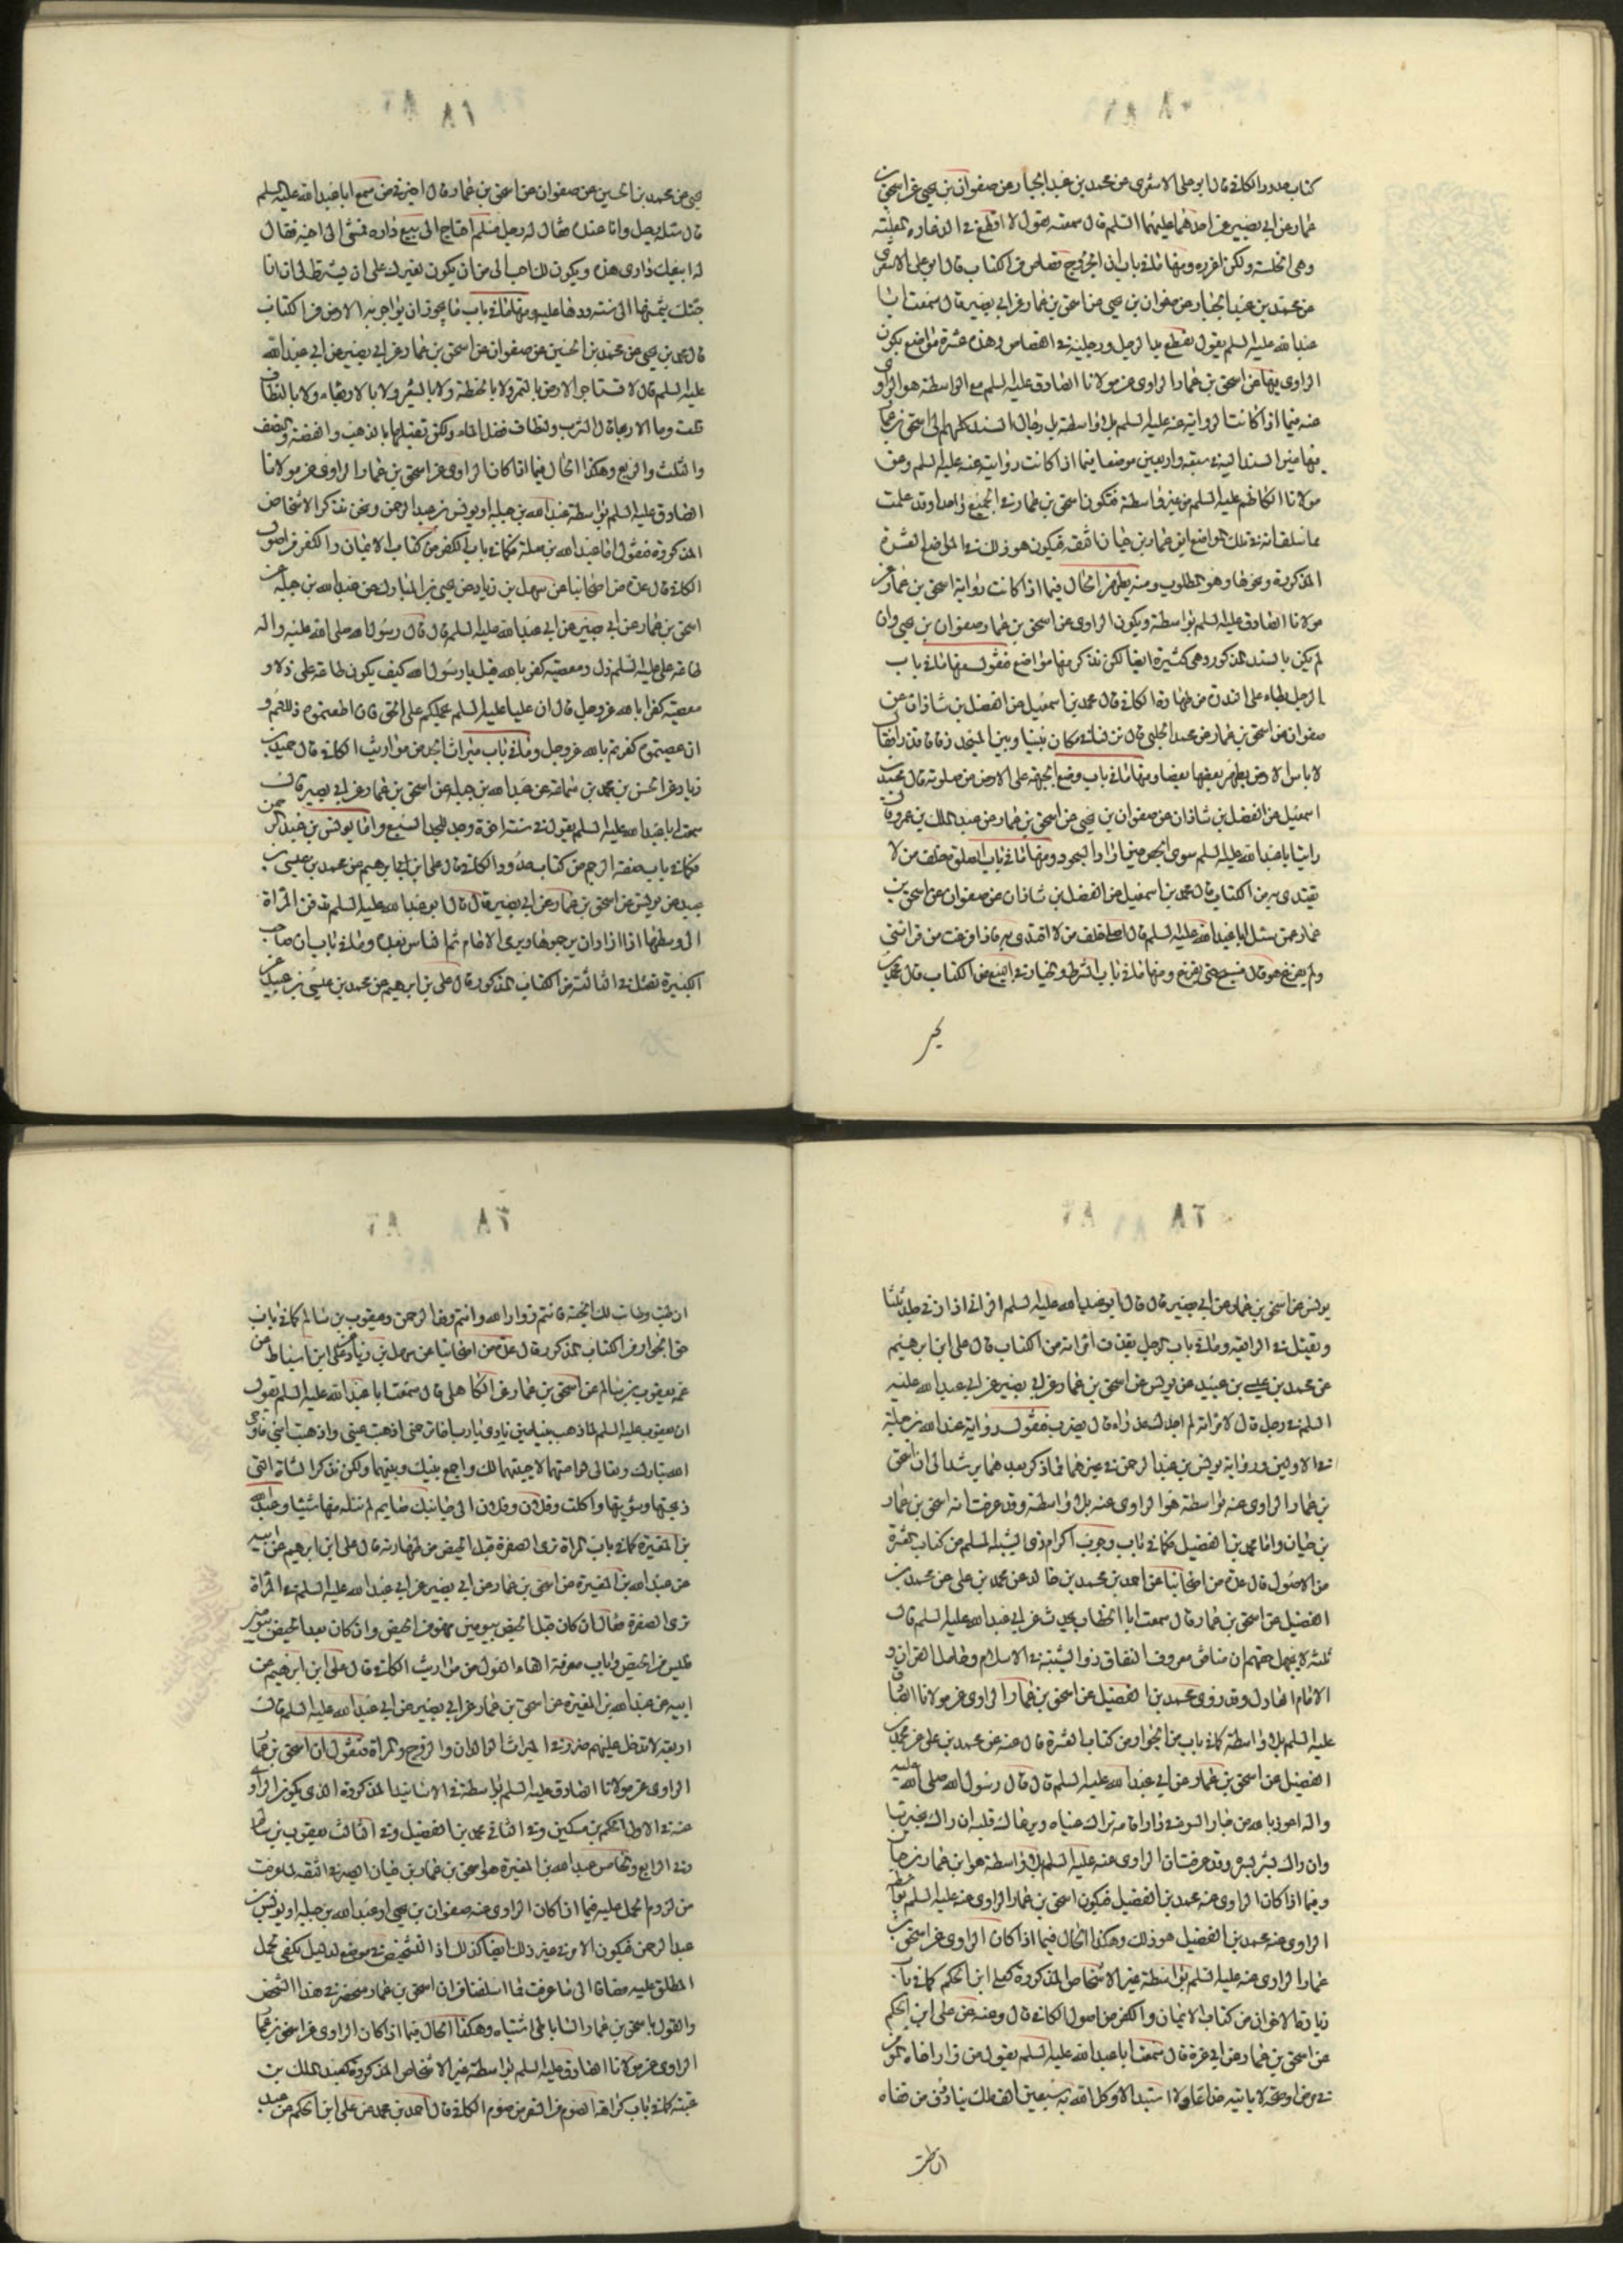 كتاب حدود الكافى قال ابو على الاشعرى عن محمد بن عبد الجبار عن صفوان بن يحيى عن اسحق بن
عمار عن ابى بصير عن احدهما عليهما السلم قال سمعته يقول لا اقطع فى الدغارة المعلنة
وهى الخلسة ولكن اعزره ومنها ما فى باب ان الجروح قصاص من الكتاب قال ابو على الاشعرى
عن محمد بن عبد الجبار عن صفوان بن يحيى عن اسحق بن عمار عن ابى بصير قال سمعت ابا
عبد الله عليه السلم يقول تقطع يدا الرجل ورجليه فى القصاص وهذه عشرة مواضع يكون
الراوى فيها عن اسحق بن عمار الراوى عن مولانا الصادق عليه السلم مع الواسطة هو الراوى
عنه فيما اذا كانت الرواية عنه عليه السلم بلا واسطة بل رجال السند كلهم الى اسحق بن عمار
مولانا الكاظم عليه السلم من غير واسطة فيكون اسحق بن عمار فى الجميع واحدا وقد علمت
مما سلف انه فى تلك المواضع ابن عمار بن حيان الثقة فيكون هو ذلك فى المواضع العشرة
المذكورة ونحوها وهو المطلوب ومنه يظهر الحال فيما اذا كانت رواية اسحق بن عمار عن
مولانا الصادق عليه السلم بواسطة ويكون الراوى عن اسحق بن عمار صفوان بن يحيى وان
لم يكن بالسند المذكور وهى كثيرة ايضا لكن نذكر منها مواضع فنقول منها ما فى باب
الرجل يطاء على العذرة من طهارة الكافى قال محمد بن اسمعيل عن الفضل بن شاذان عن
صفوان عن اسحق بن عمار عن محمد الحلبى قال نزلنا فى مكان بيننا وبين المسجد زقاق قذر
لا باس الارض يطهر بعضها بعضا ومنها ما فى باب وضع الجبهة على الارض من صلوته قال محمد بن
اسمعيل عن الفضل بن شاذان عن صفوان بن يحيى عن اسحق بن عمار عن عبد الملك بن عمرو قال
رايت ابا عبد الله عليه السلم سوى الحصى حين اراد السجود ومنها ما فى باب الصلوة خلف من لا
يقتدى به من الكتاب قال محمد بن اسمعيل عن الفضل بن شاذان عن صفوان عن اسحق بن
عمار عمن سئل ابا عبد الله عليه السلم قال اصلى خلف من لا اقتدى به فاذا فرغت من قرائتى
ولم يفرغ هو قال فسبح حتى يفرغ ومنها ما فى باب الشرط والخيار فى البيع من الكتاب قال محمد بن
يحيى
يحيى عن محمد بن الحسين عن صفوان عن اسحق بن عمار قال اخبرنى من سمع ابا عبد الله عليه السلم
قال سئله رجل وانا عنده فقال له رجل مسلم احتاج الى بيع داره فمشى الى اخيه فقال
له ابيعك دارى هذه ويكون لك احب الى من ان يكون لغيرك على ان يشترط لى ان انا
جئتك بثمنها الى سنة ردها عليه ومنها ما فى باب ما يجوز ان يواجر به الارض من الكتاب
قال محمد بن يحيى عن محمد بن الحسين عن صفوان عن اسحق بن عمار عن ابى بصير عن ابى عبد الله
عليه السلم قال لا تستاجر الارض بالتمر ولا بالحنطة ولا بالشعير ولا بالاربعاء ولا بالنطاف
قلت وما الاربعاء قال الشرب والنطاف فضل الماء ولكن تقبلها بالذهب والفضة والنصف
والثلث والربع وهكذا الحال فيما اذا كان الراوى عن اسحق بن عمار الراوى عن مولانا
الصادق عليه السلم بواسطة عبد الله بن جبلة او يونس بن عبد الرحمن ونحن نذكر الاشخاص
المذكورة فنقول اما عبد الله بن جبلة فكما فى باب الكفر من كتاب الايمان والكفر من اصول
الكافى قال عدة من اصحابنا عن سهل بن زياد عن يحيى بن المبارك عن عبد الله بن جبلة عن
اسحق بن عمار عن ابى بصير عن ابى عبد الله عليه السلم قال قال رسول الله صلى الله عليه واله
طاعة على عليه السلم ذل ومعصيته كفر بالله قيل يا رسول الله كيف يكون طاعة على ذلا و
معصيته كفرا بالله عز وجل قال ان عليا عليه السلم يحملكم على الحق فان اطعتموه ذللتم و
ان عصيتموه كفرتم بالله عز وجل وما فى باب ميراث الجد من مواريث الكافى قال حميد بن
زياد عن الحسن بن محمد بن سماعة عن عبد الله بن جبلة عن اسحق بن عمار عن ابى بصير قال
سمعت ابا عبد الله عليه السلم يقول فى ستة اخوة وجد للجد السبع واما يونس بن عبد الرحمن
فكما فى باب صفة الرجم من كتاب حدود الكافى قال على ابن ابراهيم عن محمد بن عيسى بن
عبيد عن يونس عن اسحق بن عمار عن ابى بصير قال قال ابو عبد الله عليه السلم تدفن المراة
الى وسطها اذا ارادوا ان يرجموها ويرمى الامام ثم الناس بعده وما فى باب ان صاحب
الكبيرة تقتل فى الثالثة من الكتاب المذكور قال على بن ابرهيم عن محمد بن عيسى بن عبيد عن
يونس عن اسحق بن عمار عن ابى بصير قال قال ابو عبد الله عليه السلم الزانى اذا زنى جلد ثلثا
ويقتل فى الرابعة وما فى باب الرجل يقذف امراته من الكتاب قال على ابن ابرهيم
عن محمد بن عيسى بن عبيد عن يونس عن اسحق بن عمار عن ابى بصير عن ابى عبد الله عليه
السلم فى رجل قال لامراته لم اجدك عذراء قال يضرب فنقول رواية عبد الله بن جبلة
فى الاولين ورواية يونس بن عبد الرحمن فى غيرهما مما ذكر بعدهما يرشد الى ان اسحق
بن عمار الراوى عنه بواسطة هو الراوى عنه بلا واسطة وقد عرفت انه اسحق بن عمار
بن حيان واما محمد بن الفضيل فكما فى باب وجوب اكرام ذى الشيبة المسلم من كتاب العشرة
من الاصول قال عدة من اصحابنا عن احمد بن محمد بن خالد عن محمد بن على عن محمد بن
الفضيل عن اسحق بن عمار قال سمعت ابا الخطاب يحدث عن ابى عبد الله عليه السلم قال
ثلثة لا يجهل حقهم الا منافق معروف النفاق ذو الشيبة فى الاسلام وحامل القران و
الامام العادل وقد روى محمد بن الفضيل عن اسحق بن عمار الراوى عن مولانا الصادق
عليه السلم بلا واسطة كما فى باب من الجوار من كتاب العشرة قال عنه عن محمد بن على عن محمد بن
الفضيل عن اسحق بن عمار عن ابى عبد الله عليه السلم قال قال رسول الله صلى الله عليه
واله اعوذ بالله من جار السوء فى دار اقامة تراك عيناه ويرعاك قلبه ان راك بخير ساءه
وان راك بشر سره وقد عرفت ان الراوى عنه عليه السلم بلا واسطة هو ابن عمار بن حيان
وفيما اذا كان الراوى عنه محمد بن الفضيل فيكون اسحق بن عمار الراوى عنه عليه السلم بواسطة
الراوى عنه محمد بن الفضيل هو ذلك وهكذا الحال فيما اذا كان الراوى عن اسحق بن
عمار الراوى عنه عليه السلم بواسطة غير الاشخاص المذكورة كعلى ابن الحكم كما فى باب
زيارة الاخوان من كتاب الايمان والكفر من اصول الكافى قال وعنه عن على ابن الحكم
عن اسحق بن عمار عن ابى غرة قال سمعت ابا عبد الله عليه السلم يقول من زار اخاه
فى مرض او صحة لا ياتيه خداعا ولا استبدالا وكل الله به سبعين الف ملك ينادون من قفاه
ان طبت
ان طبت وطابت لك الجنة فانتم زوار الله وانتم وفد الرحمن ويعقوب بن سالم كما فى باب
حق الجوار من الكتاب المذكور قال عدة من اصحابنا عن سهل بن زياد عن على ابن اسباط عن
عمه يعقوب بن سالم عن اسحق بن عمار عن الكاهلى قال سمعت ابا عبد الله عليه السلم يقول
ان يعقوب عليه السلم لما ذهب بنيامين نادى يا رب اما ترحمنى اذهبت عينى واذهبت ابنى فاوحى
الله تبارك وتعالى لو امتهما لاحييتهما لك واجمع بينك وبينهما ولكن تذكر الشاة التى
ذبحتها وشويتها واكلت وفلان وفلان الى جانبك صايم لم تنله منها شيئا وعبد الله
بن المغيرة كما فى باب المراة ترى الصفرة قبل الحيض من طهارته قال على ابن ابرهيم عن ابيه
عن عبد الله بن المغيرة عن اسحق بن عمار عن ابى بصير عن ابى عبد الله عليه السلم فى المراة
ترى الصفرة فقال ان كان قبل الحيض بيومين فهو من الحيض وان كان بعد الحيض بيومين
فليس من الحيض وباب معرفة القاء العول من مواريث الكافى قال على ابن ابرهيم عن
ابيه عن عبد الله بن المغيرة عن اسحق بن عمار عن ابى بصير عن ابى عبد الله عليه السلم قال
اربعة لا تدخل عليهم ضرر فى الميراث الوالدان والزوج والمراة فنقول ان اسحق بن عمار
الراوى عن مولانا الصادق عليه السلم بواسطة فى الاسانيد المذكورة الذى يكون الراوى
عنه فى الاول الحكم بن مسكين وفى الثانى محمد بن الفضيل وفى الثالث يعقوب بن سالم
وفى الرابع والخامس عبد الله بن المغيرة هو اسحق بن عمار بن حيان الصيرفى الثقة لما عرفت
من لزوم الحمل عليه فيما اذا كان الراوى عنه صفوان بن يحيى او عبد الله بن جبلة او يونس بن
عبد الرحمن فيكون الامر فى غير ذلك ايضا كذلك اذ التشخيص فى موضع لدليل يكفى لحمل
المطلق عليه مضافا الى ما عرفت مما اسلفنا من ان اسحق بن عمار منحصر فى هذا الشخص
والقول باسحق بن عمار الساباطى اشتباه وهكذا الحال فيما اذا كان الراوى عن اسحق بن عمار
الراوى عن مولانا الصادق عليه السلم بواسطة غير الاشخاص المذكورة كعبد الملك بن
عتبة كما فى باب كراهة الصوم فى السفر من صوم الكافى قال احمد بن محمد عن على ابن الحكم عن عبد